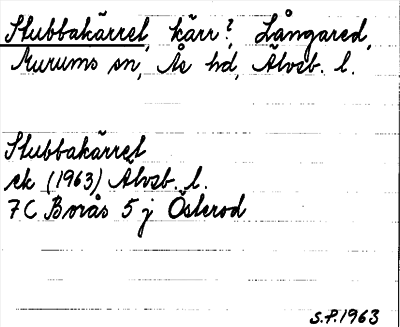 Stubbakärret, kärr?, Långared,
Murums sn, Ås hd, Älvsb. l.
Stubbakärret
ek (1963) Älvsb. l.
7C Borås 5 j Österod
S.F. 1963